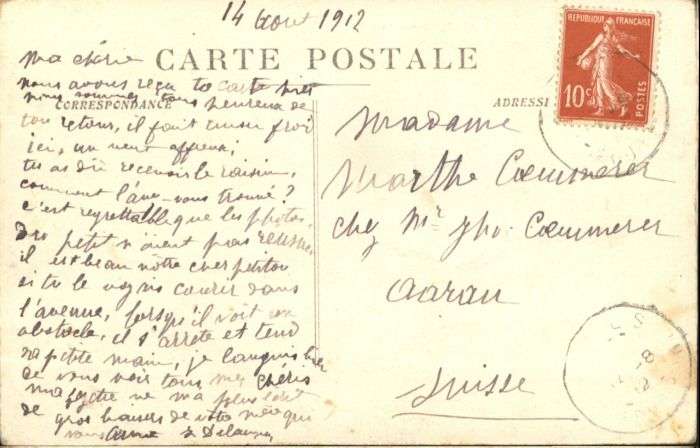 14 Aout 1912
CARTE POSTALE
CORRESPONDANCE
ADRESSE
RÉPUBLIQUE FRANÇAISE
10c
POSTES
Ma chérie
nous avons reçu ta carte
nous sommes tous heureux de
ton retour, il fait aussi froi
ici, un vent affreux,
tu as dû recevoir le raisin,
comment l'avez-vous trouvé?
c'est regrettable que les photos,
du petit n'aient pas réussies,
il est beau nôtre cher petiton
si tu le voyais courir dans
l'avenue, lorsqu'il voit un
obstacle, il s'arrête et tend
sa petite main, je languis
de vous voir tous mes chéris
ne ma plus
de gros baisers de votre mère qui
vous aime
Madame
Marthe Caemmerer
chez Mr Caemmerer
Aarau
Suisse